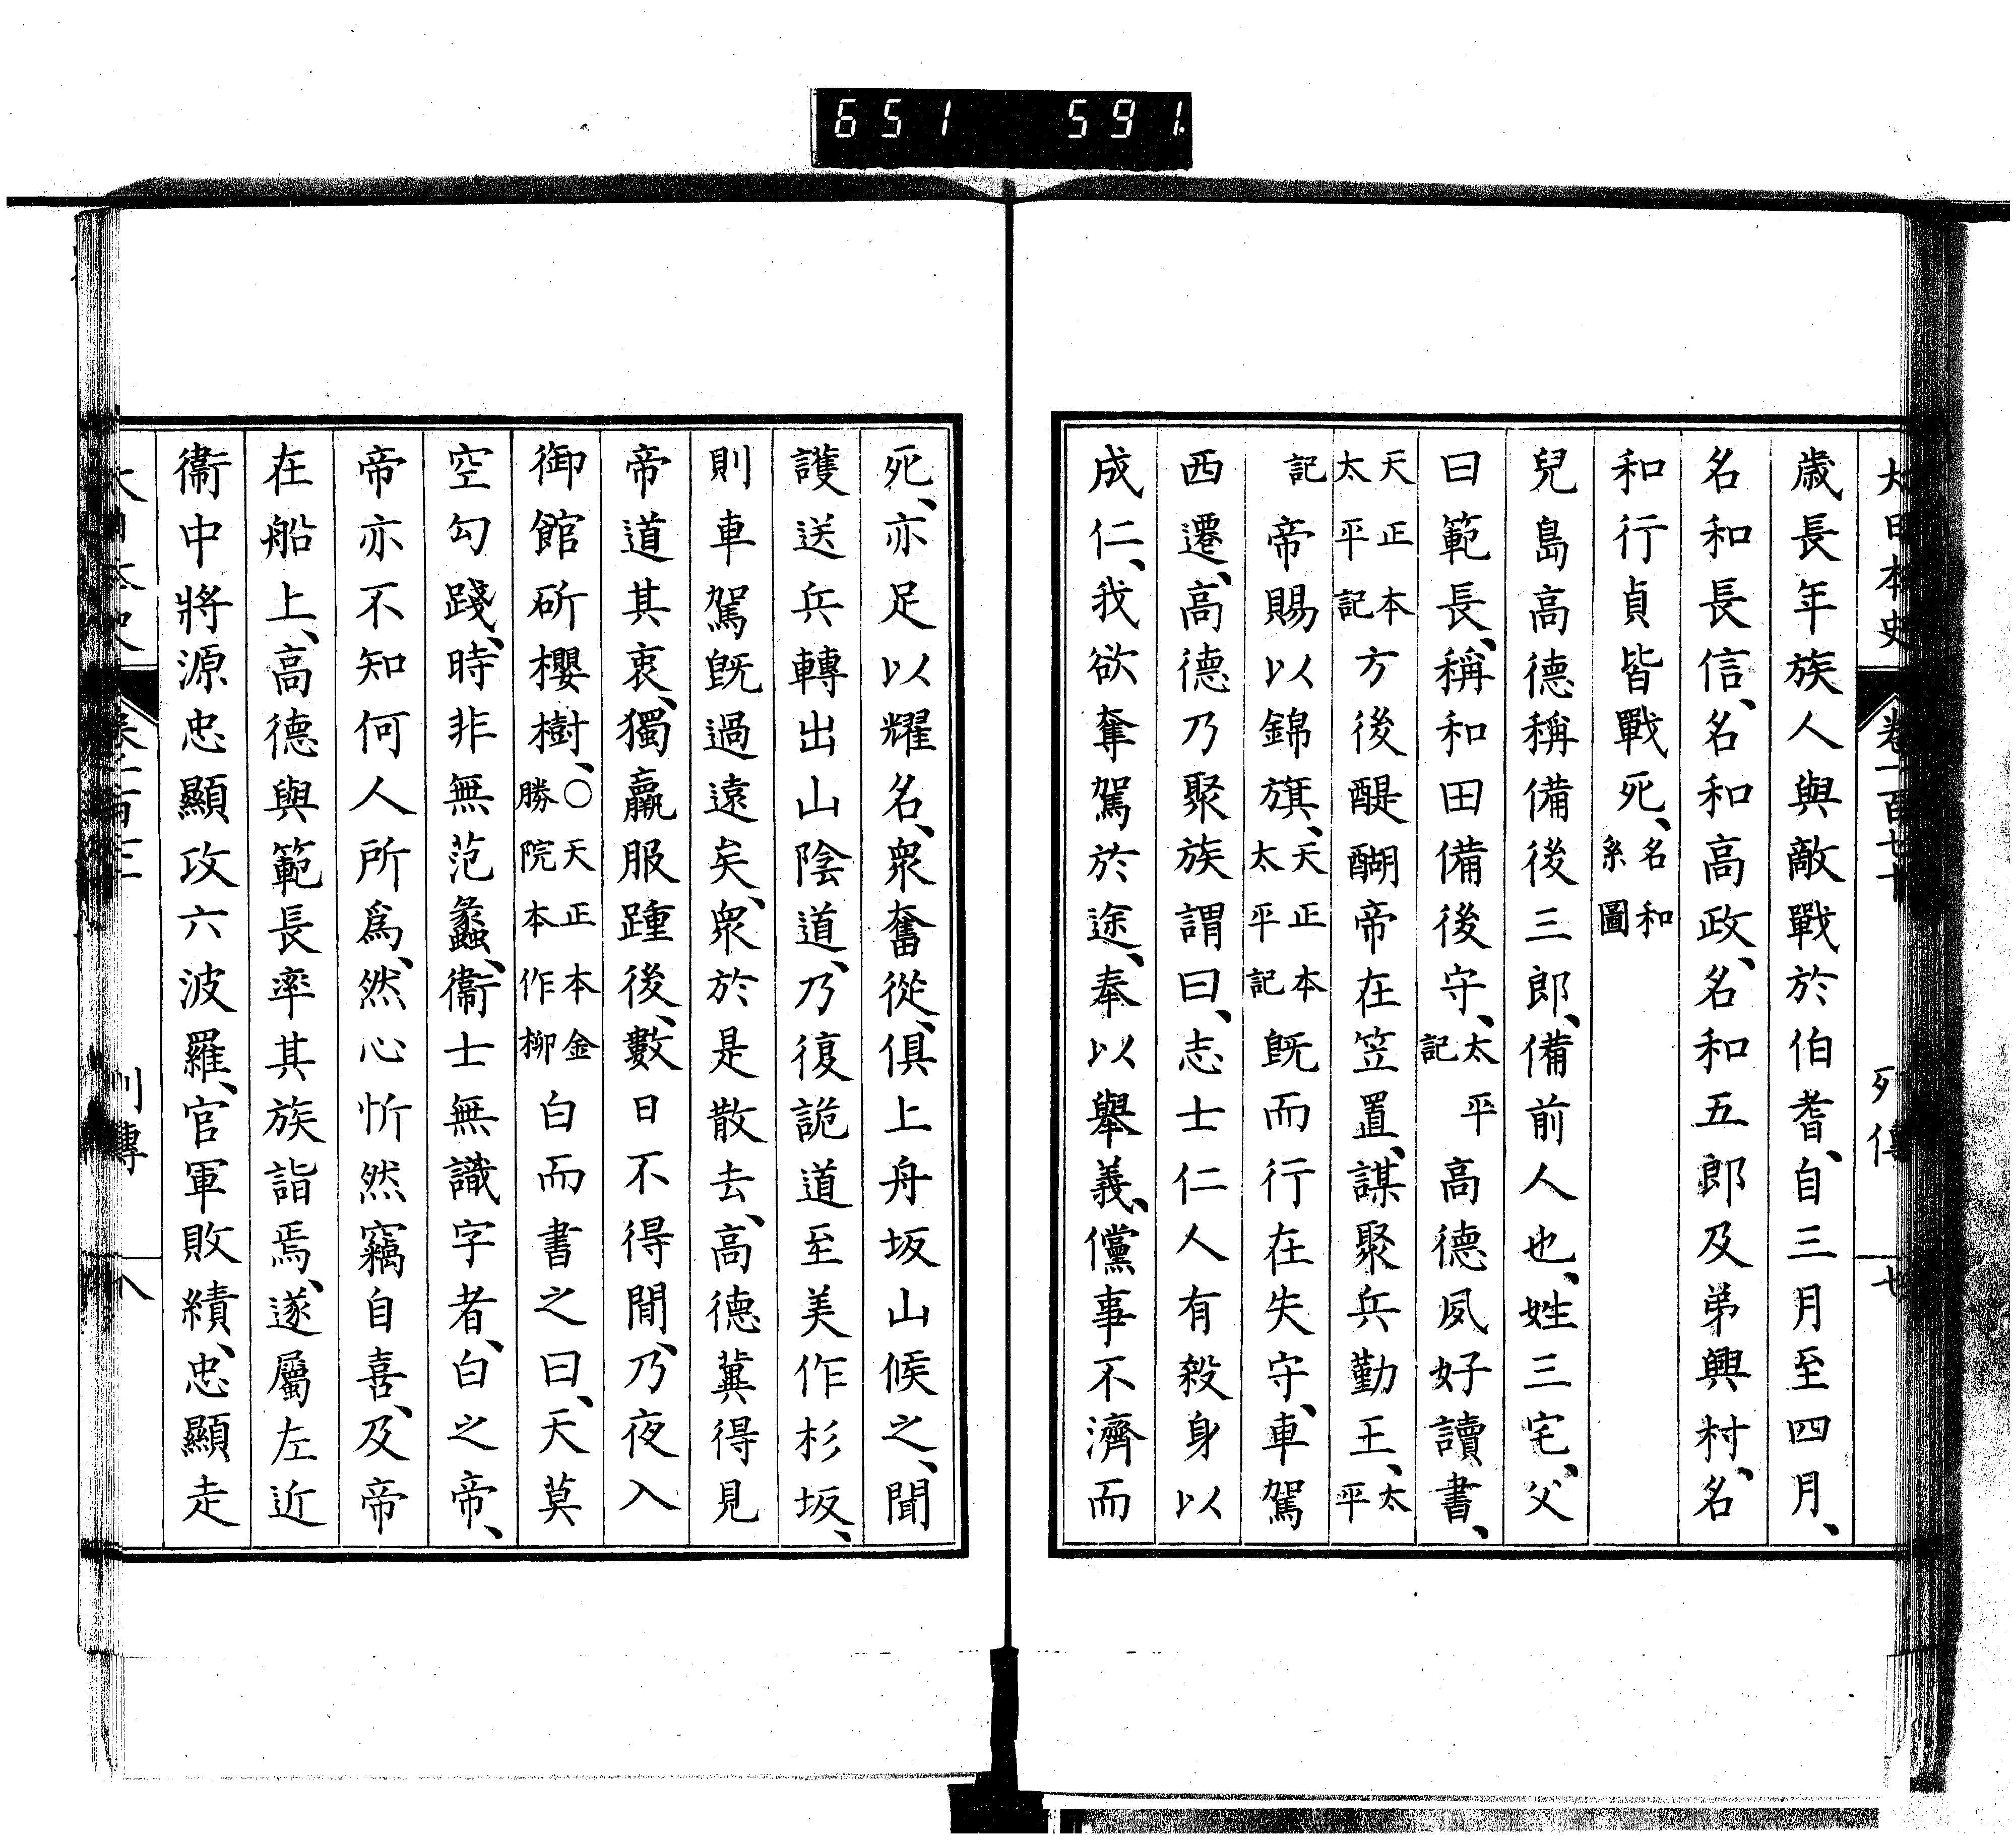 651 591
大日本史 卷一百七十 列傳 七
歳長年族人與敵戰於伯耆、自三月至四月、
名和長信、名和高政、名和五郎及弟興村、名
和行貞皆戰死、名和系圖
兒島高德稱備後三郎、備前人也、姓三宅、父
曰範長、稱和田備後守、太平記高德夙好讀書、
天正本太平記方後醍醐帝在笠置、謀聚兵勤王、太平
記帝賜以錦旗、天正本太平記既而行在失守、車駕
西遷、高德乃聚族謂曰、志士仁人有殺身以
成仁、我欲奪駕於途、奉以舉義、儻事不濟而
死、亦足以耀名、衆奮從、俱上舟坂山候之、聞
護送兵轉出山陰道、乃復詭道至美作杉坂、
則車駕既過遠矣、衆於是散去、高德冀得見
帝道其衷、獨羸服踵後、數日不得間、乃夜入
御館斫櫻樹、○天正本金勝院本作柳白而書之曰、天莫
空勾踐、時非無范蠡、衞士無識字者、白之帝、
帝亦不知何人所爲、然心忻然竊自喜、及帝
在船上、高德與範長率其族詣焉、遂屬左近
衞中將源忠顯攻六波羅、官軍敗績、忠顯走
列傳 八